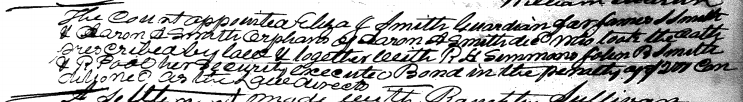 The Court appointed Eliza J Smith Guardian for James S Smith
& Aaron A Smith orphans of Aaron A Smith decd who took the oath
prescribed by law & together with R H Simmons John B Smith
& P. Pool her security executed Bond in the penalty of $200 Con
ditioned as the law directs
A settlement made with Sullivan